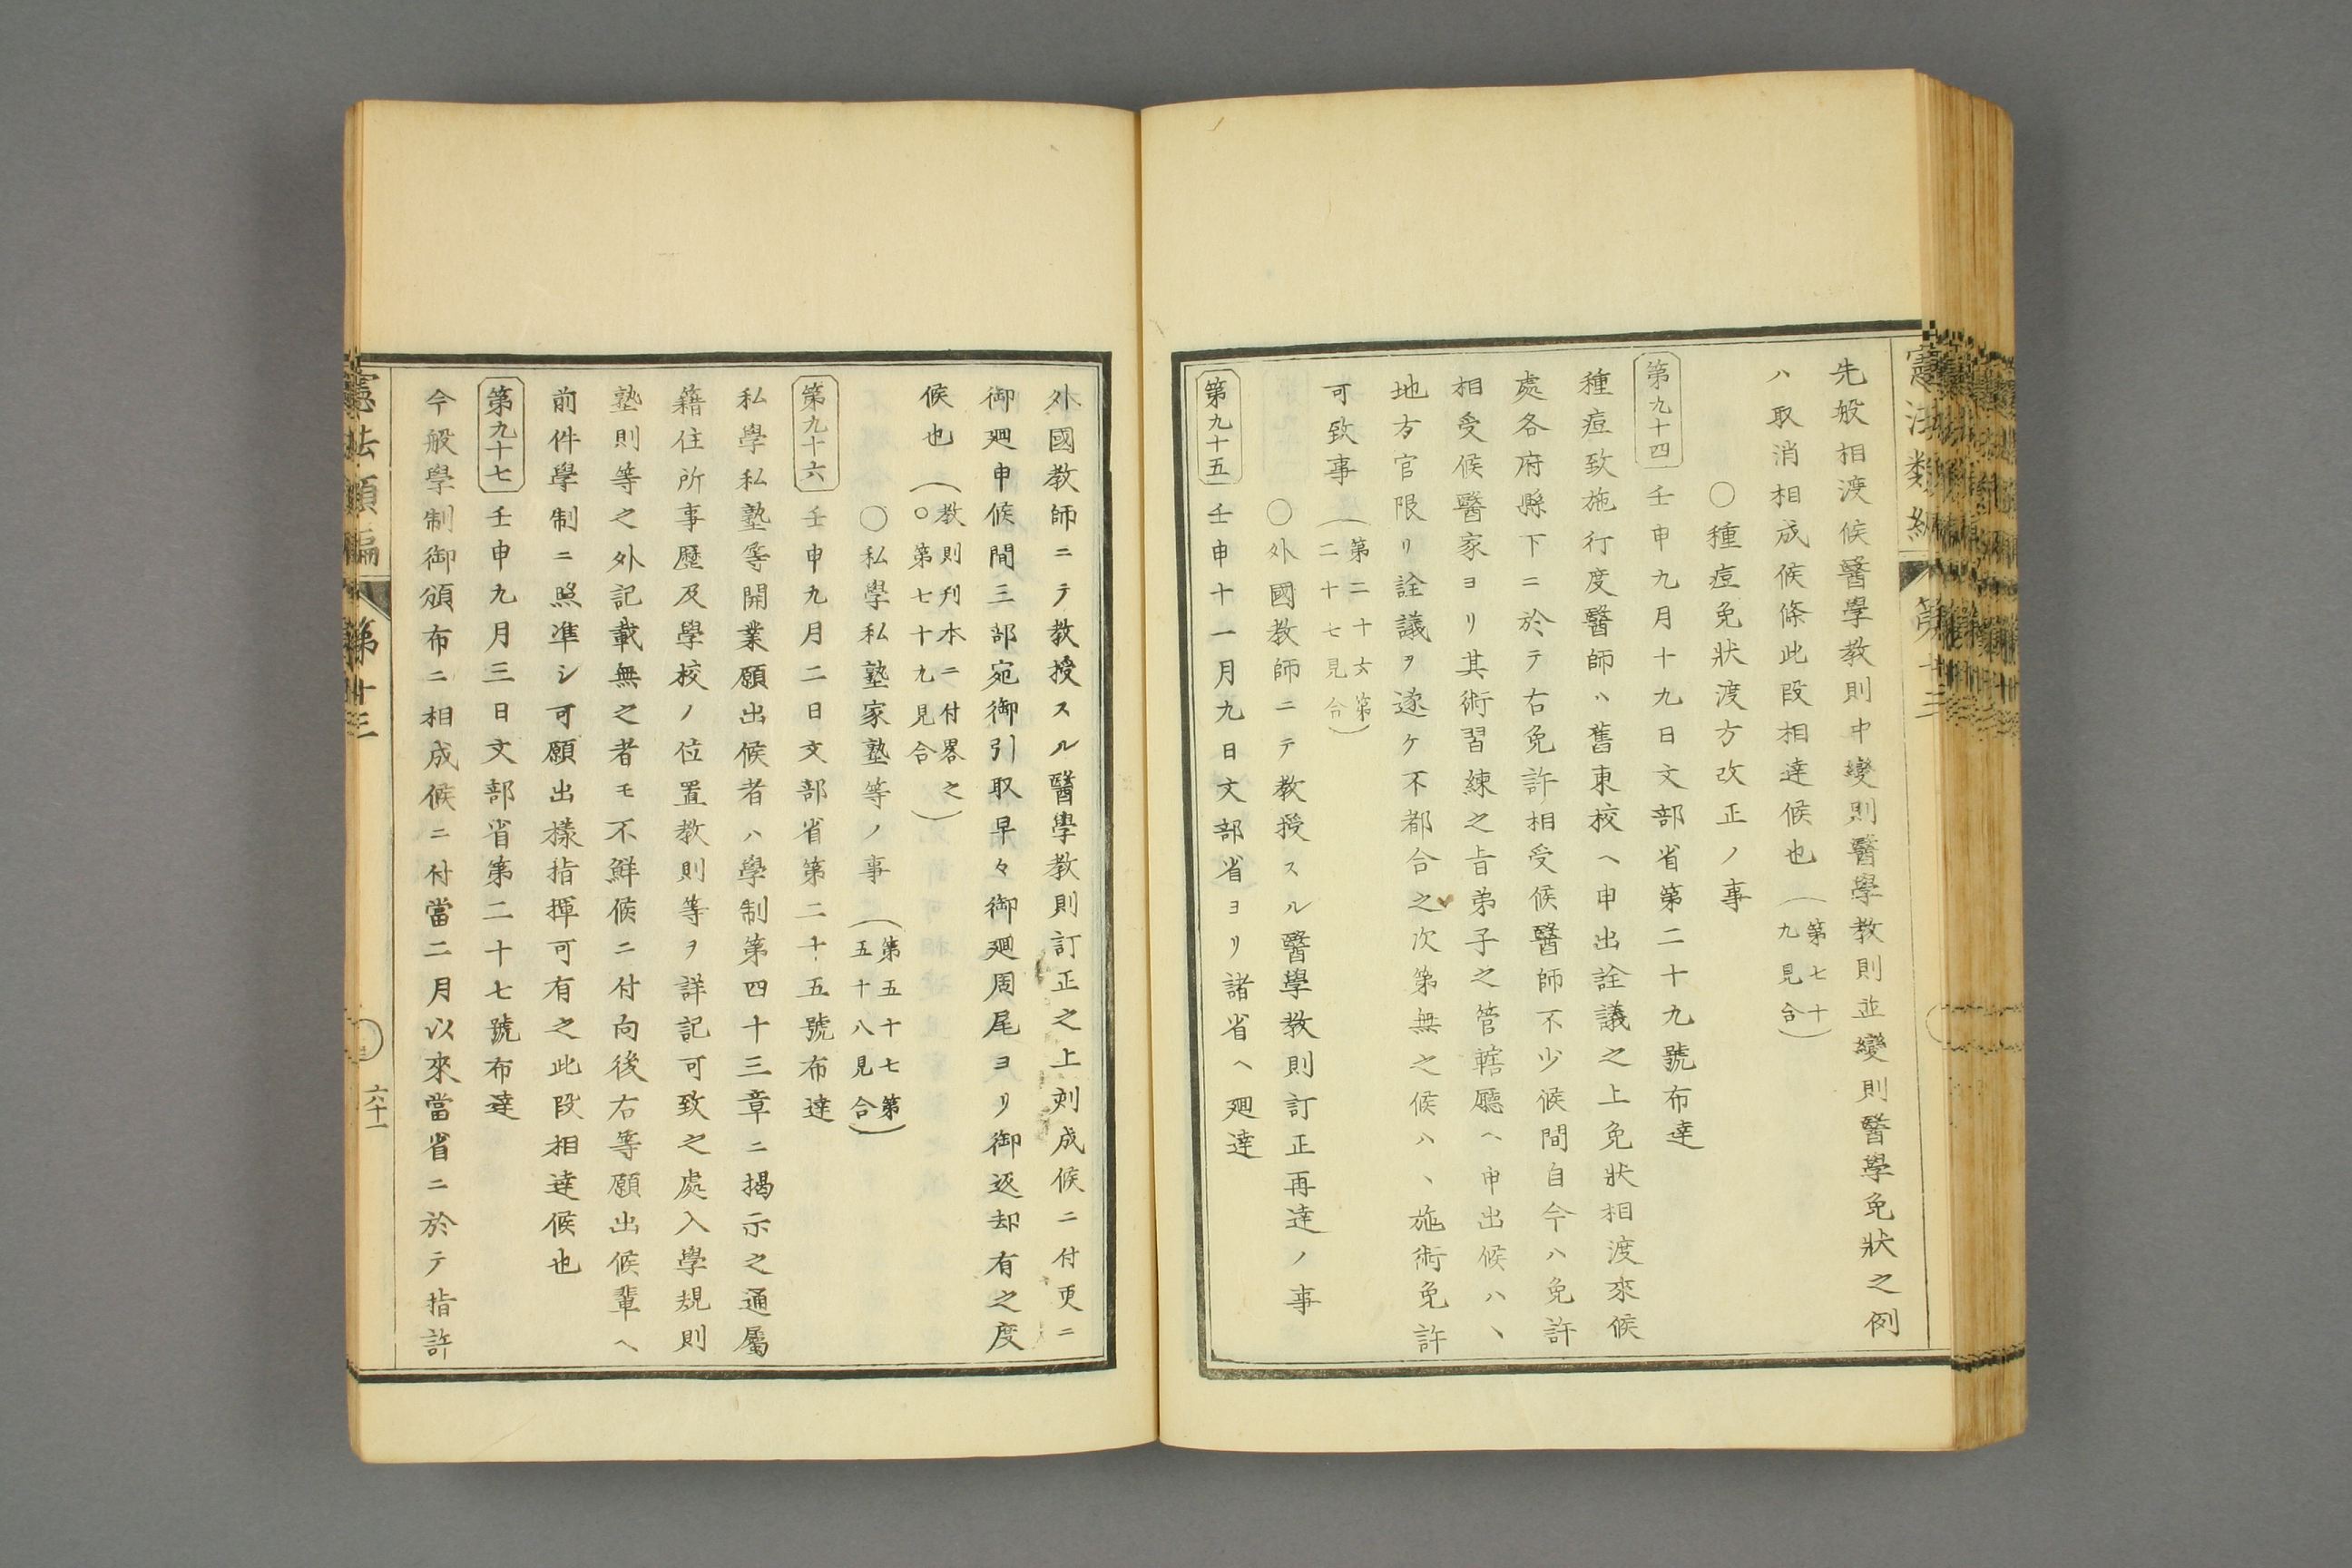 先般相渡候醫學教則中變則醫學教則並變則醫學免狀之例
ハ取消相成候條此段相達候也（第七十九見合）
〇種痘免狀渡方改正ノ事
第九十四 壬申九月十九日文部省第二十九號布達
種痘致施行度醫師ハ舊東校ヘ申出詮議之上免狀相渡來候
處各府縣下ニ於テ右免許相受候醫師不少候間自今ハ免許
相受候醫家ヨリ其術習練之旨弟子之管轄廳ヘ申出候ハヽ
地方官限リ詮議ヲ遂ケ不都合之次第無之候ハヽ施術免許
可致事（第二十六第二十七見合）
〇外國教師ニテ教授スル醫學教則訂正再達ノ事
第九十五 壬申十一月九日文部省ヨリ諸省ヘ廻達
外國教師ニテ教授スル醫學教則訂正之上刻成候ニ付更ニ
御廻申候間三部宛御引取早々御廻周尾ヨリ御返却有之度
候也（教則刋本ニ付畧之〇第七十九見合）
〇私學私塾家塾等ノ事（第五十七第五十八見合）
第九十六 壬申九月二日文部省第二十五號布達
私學私塾等開業願出候者ハ學制第四十三章ニ揭示之通屬
籍住所事歷及學校ノ位置教則等ヲ詳記可致之處入學規則
塾則等之外記載無之者モ不鮮候ニ付向後右等願出候輩ヘ
前件學制ニ照準シ可願出樣指揮可有之此段相達候也
第九十七 壬申九月三日文部省第二十七號布達
今般學制御頒布ニ相成候ニ付當二月以來當省ニ於テ指許
憲法類編 第十三
六十一
憲法類編 第十三